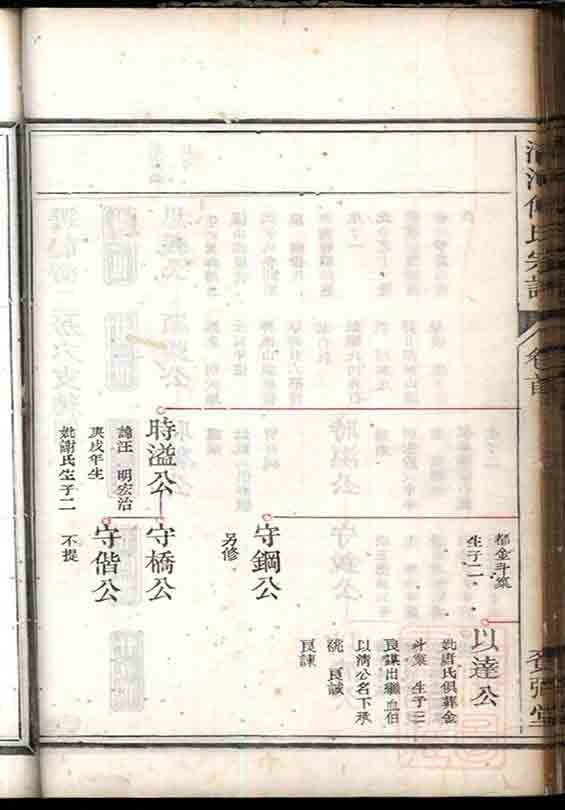 氏宗譜
卷首
郁金斗塟
生子二
以達公
妣唐氏俱葬金
斗塟 生子三
良謀出繼血伯
以清公名下承
祧 良誠
良諫
守鋼公
另修
時溢公
諱汪 明宏治
庚戌年生
妣謝氏生子二
守橋公
守偕公
不提